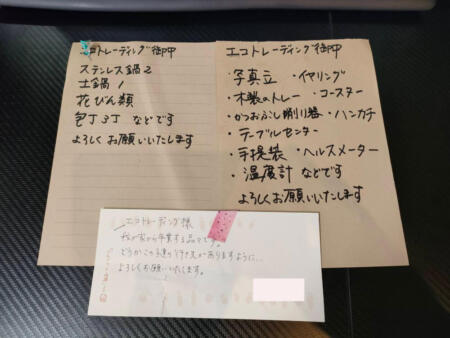 エコトレーディング御中
ステンレス鍋2
土鍋1
花びん類
包丁3丁 などです
よろしくお願いいたします
エコトレーディング御中
・写真立 ・イヤリング
・木製のトレー ・コースター
・かつおぶし削り器 ・ハンカチ
・テーブルセンター
・手提袋 ・ヘルスメーター
・温度計 などです
よろしくお願いいたします
エコトレーディング様
我が家から卒業する品々です。
どうかこの子達の行き先がありますように…
よろしくお願い致します。